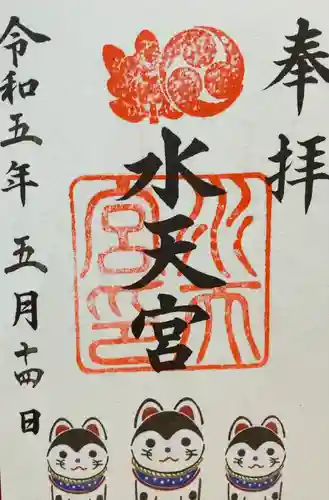 奉拝
水天宮
水天宮印
令和五年 五月十四日